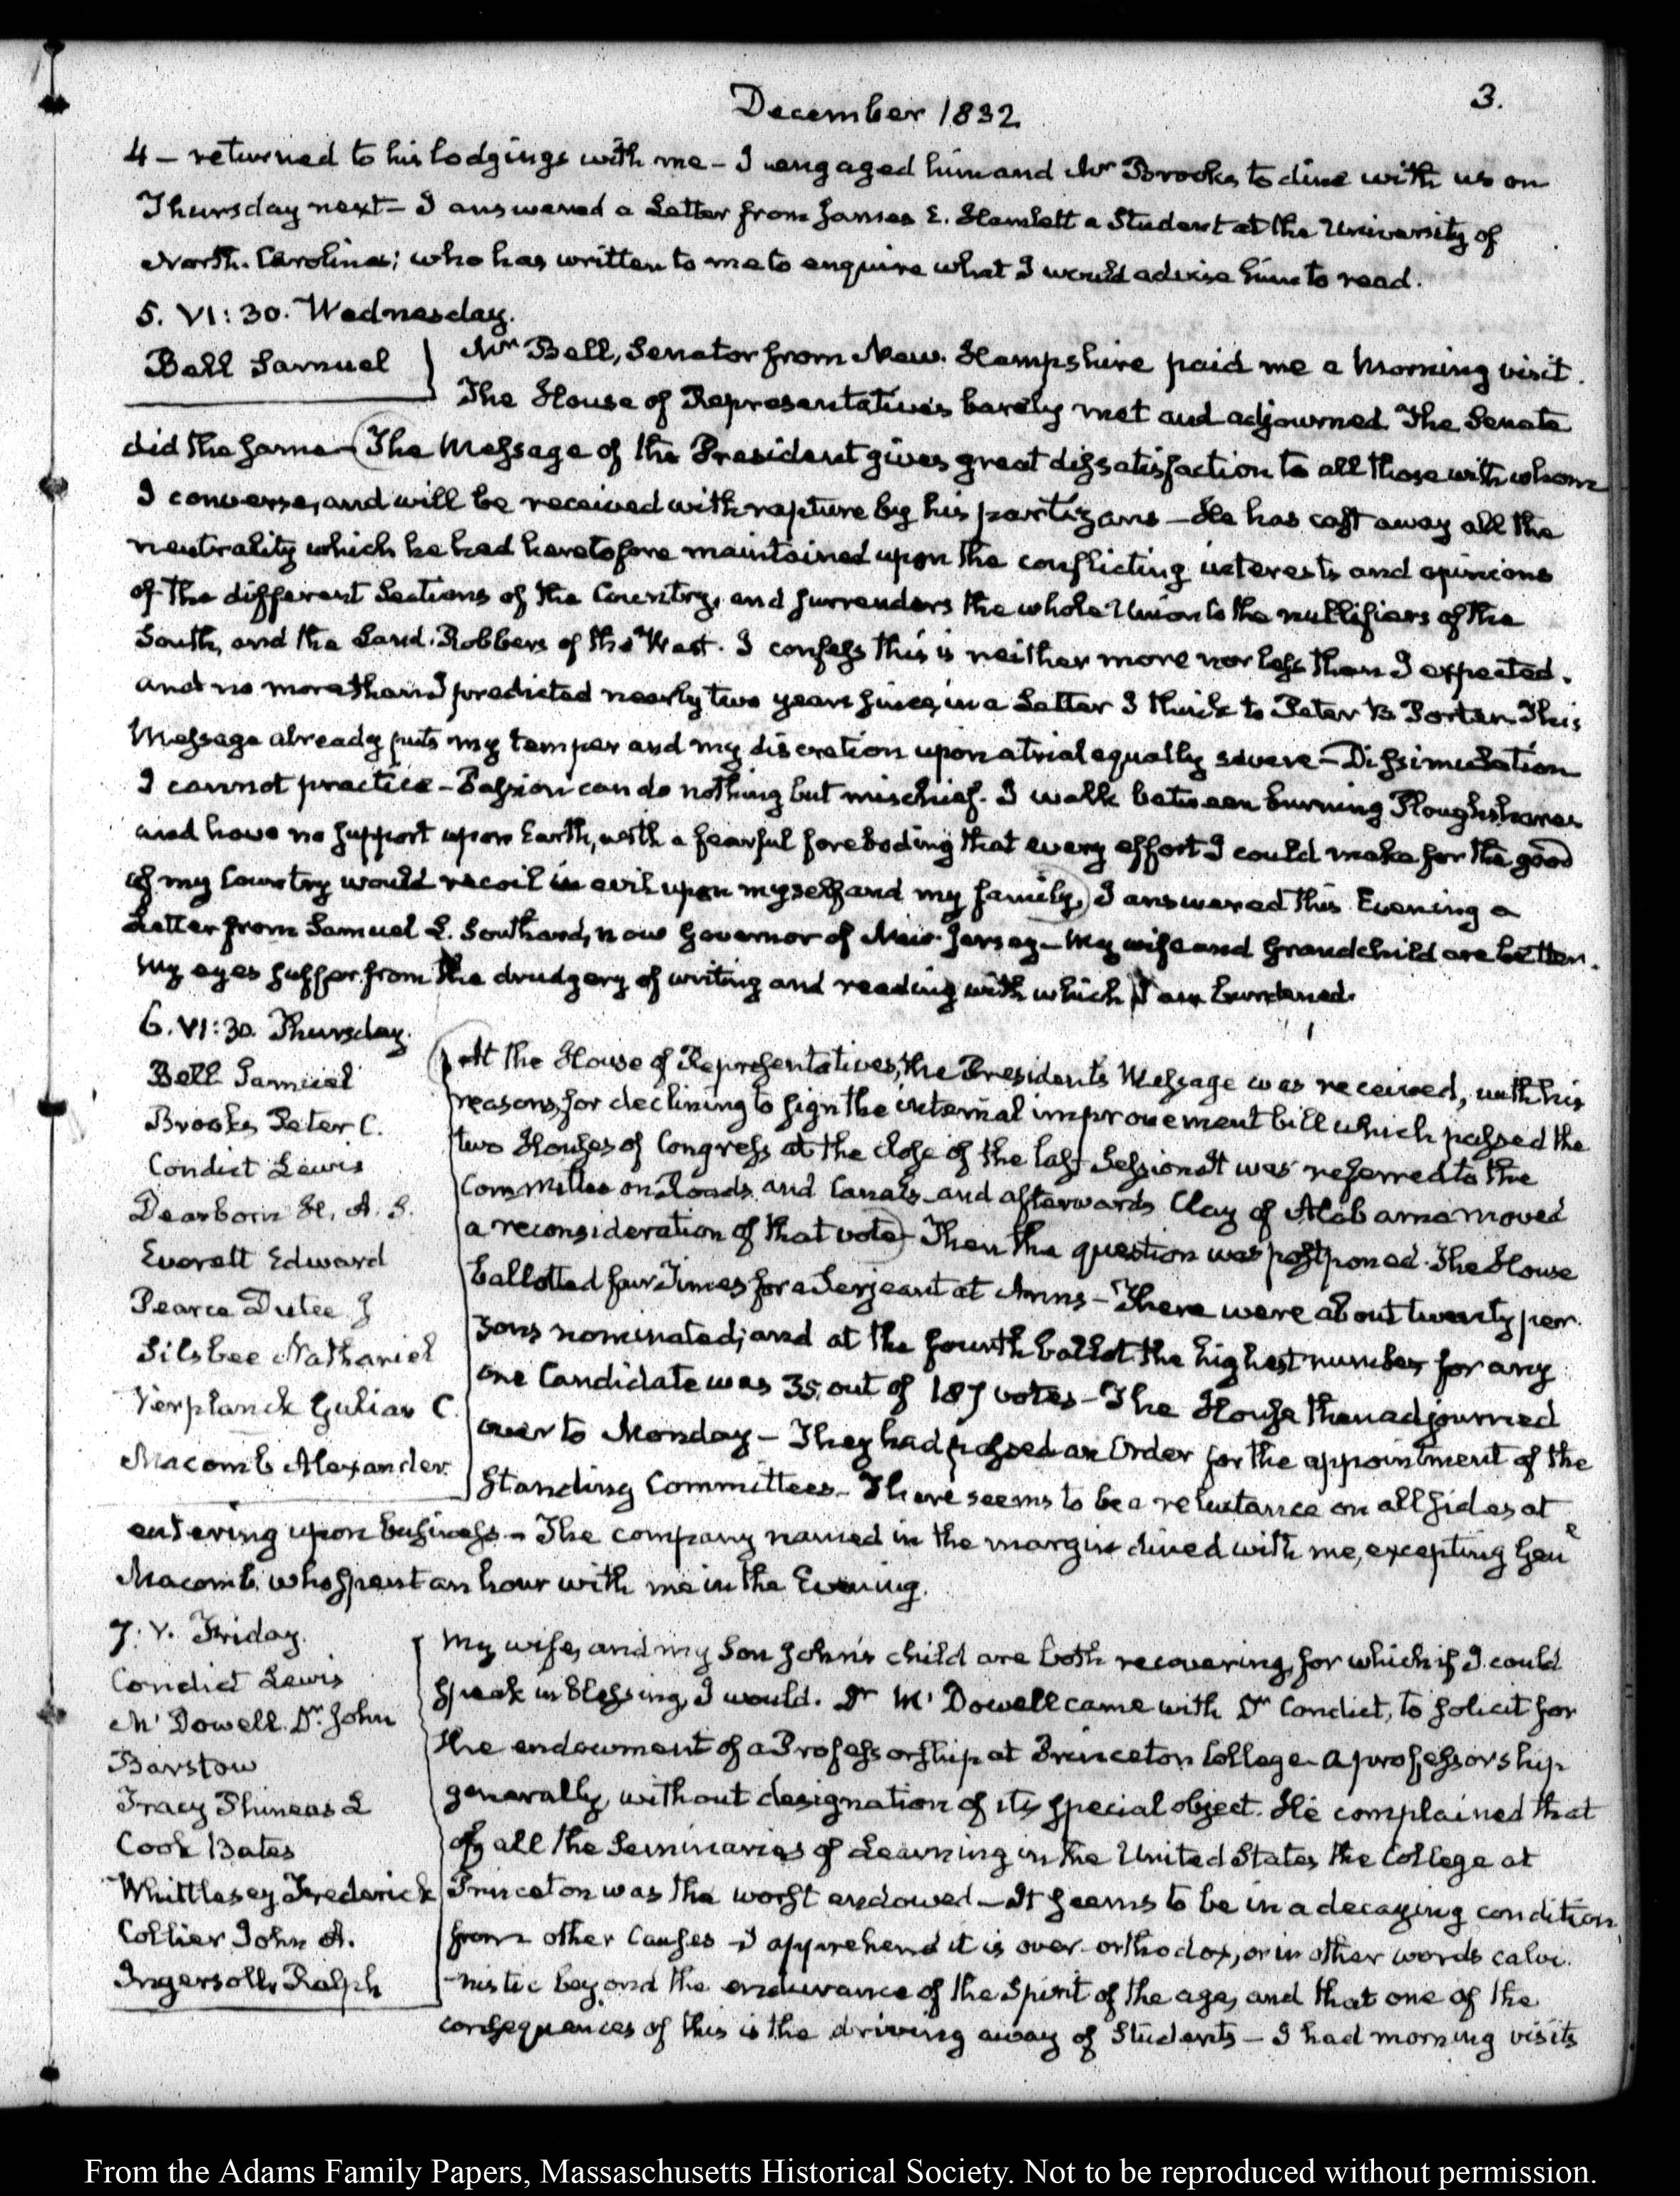 December 1832
3.
4 – returned to his lodgings with me – I engaged him and Mr Brooks to dine with us on
Thursday next – I answered a Letter from James E. Hamlett a Student at the University of
North-Carolina; who has written to me to enquire what I would advise him to read.
5. VI:30. Wednesday.
Bell Samuel
Mr Bell, Senator from New-Hampshire paid me a morning visit.
The House of Representatives barely met and adjourned. The Senate
did the same – The Message of the President gives great dissatisfaction to all those with whom
I converse, and will be received with rapture by his partizans – He has cast away all the
neutrality which he had heretofore maintained upon the conflicting interests and opinions
of the different Sections of the Country, and surrenders the whole Union to the nullifiers of the
South, and the Land-Robbers of the West. I confess this is neither more nor less than I expected,
and no more than I predicted nearly two years since, in a Letter I think to Peter B. Porter. This
Message already puts my temper and my discretion upon a trial equally severe – Dissimulation
I cannot practice – Passion can do nothing but mischief. I walk between burning Ploughshares
and have no support upon Earth, with a fearful foreboding that every effort I could make for the good
of my Country would recoil in evil upon myself and my family. I answered this Evening a
Letter from Samuel L. Southard, now Governor of New-Jersey – My wife and Grandchild are better.
My eyes suffer from the drudgery of writing and reading with which I am burdened.
6. VI:30. Thursday.
Bell Samuel
Brooks Peter C.
Condict Lewis
Dearborn H. A. S.
Everett Edward
Pearce Dutee J
Silsbee Nathaniel
Verplanck Gulian C.
Macomb Alexander
At the House of Representatives, the Presidents Message was received, with his
reasons, for declining to sign the internal improvement bill which passed the
two Houses of Congress at the close of the last Session. It was referred to the
Committee on Roads and Canals, and afterwards Clay of Alabama moved
a reconsideration of that vote – Then the question was postponed. The House
ballotted four Times for a Serjeant at Arms – There were about twenty per-
sons nominated; and at the fourth ballot the highest number for any
one Candidate was 35, out of 187 votes – The House then adjourned
over to Monday – They had passed an Order for the appointment of the
Standing Committees – There seems to be a reluctance on all sides at
entering upon business – The company named in the margin dined with me, excepting Genl
Macomb, who spent an hour with me in the Evening.
7. V. Friday.
Condict Lewis
Mc Dowell Dr. John
Barstow
Tracy Phineas L
Cook Bates
Whittlesey Frederick
Collier John A.
Ingersoll, Ralph
My wife, and my Son John's child are both recovering, for which if I could
speak in blessing, I would. Dr Mc Dowell came with Dr Condict, to solicit for
the endowment of a Professorship at Princeton College – a professorship
generally, without designation of its special object. He complained that
of all the Seminaries of Learning in the United States the College at
Princeton was the worst endowed – It seems to be in a decaying condition
from other Causes – I apprehend it is over-orthodox, or in other words calvi-
-nistic beyond the endurance of the Spirit of the age, and that one of the
consequences of this is the driving away of Students – I had morning visits
From the Adams Family Papers, Massachusetts Historical Society. Not to be reproduced without permission.